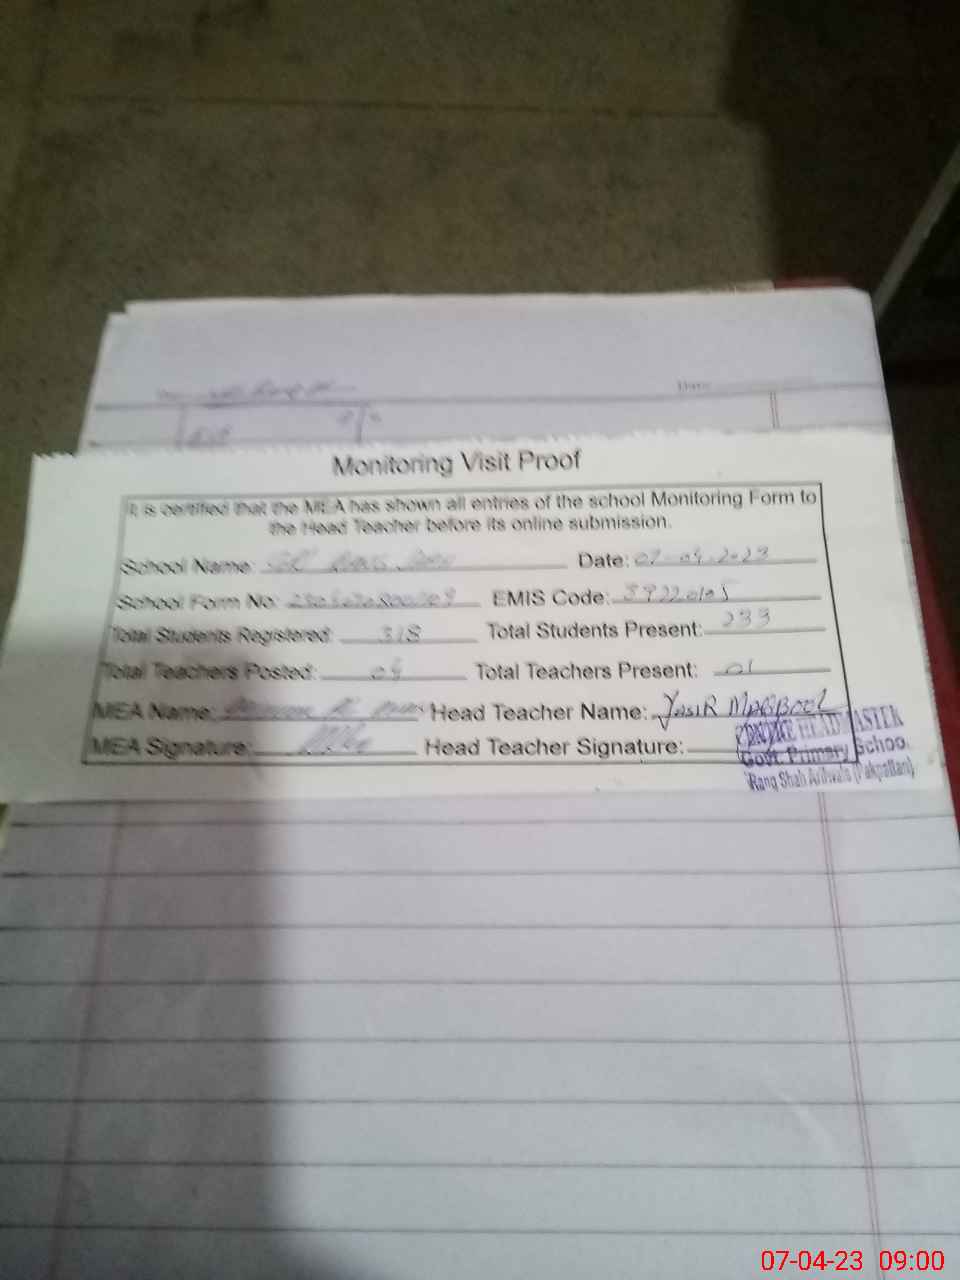 Date:
Monitoring Visit Proof
It is certified that the MEA has shown all entries of the school Monitoring Form to
the Head Teacher before its online submission.
School Name: Date: 07-04-2023
School Form No: EMIS Code: 39220105
Total Students Registered: 318 Total Students Present: 233
Total Teachers Posted: 04 Total Teachers Present: 01
MEA Name: Head Teacher Name: YASIR MAQBOOL
MEA Signature: Head Teacher Signature:
HEADMASTER
Govt. Primary School
Rang Shah Arifwala (Pakpattan)
07-04-23 09:00